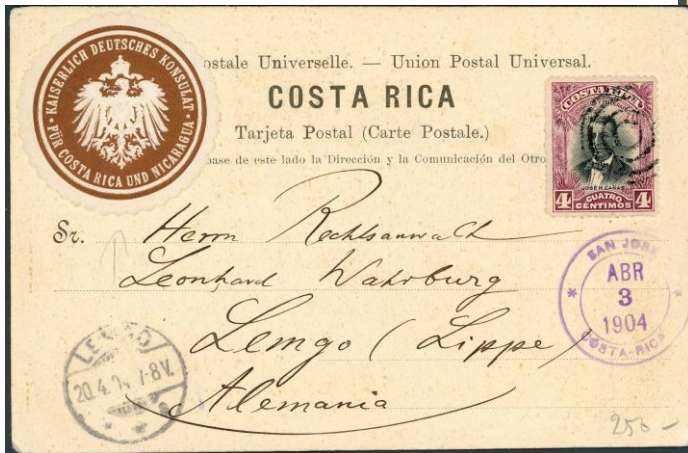 KAISERLICH DEUTSCHES KONSULAT
FÜR COSTA RICA UND NICARAGUA
ostale Universelle. — Union Postal Universal.
COSTA RICA
Tarjeta Postal (Carte Postale.)
base de este lado la Dirección y la Comunicación del Otro
COSTA RICA
JOSÉ M. CAÑAS
4 CUATRO CENTIMOS 4
Sr. Herrn Rechtsanwalt
Leonhard Wahrburg
Lemgo (Lippe)
Alemania
SAN JOSE
ABR
3
1904
COSTA-RICA
LEMGO
20.4.04 7-8V.
250 –